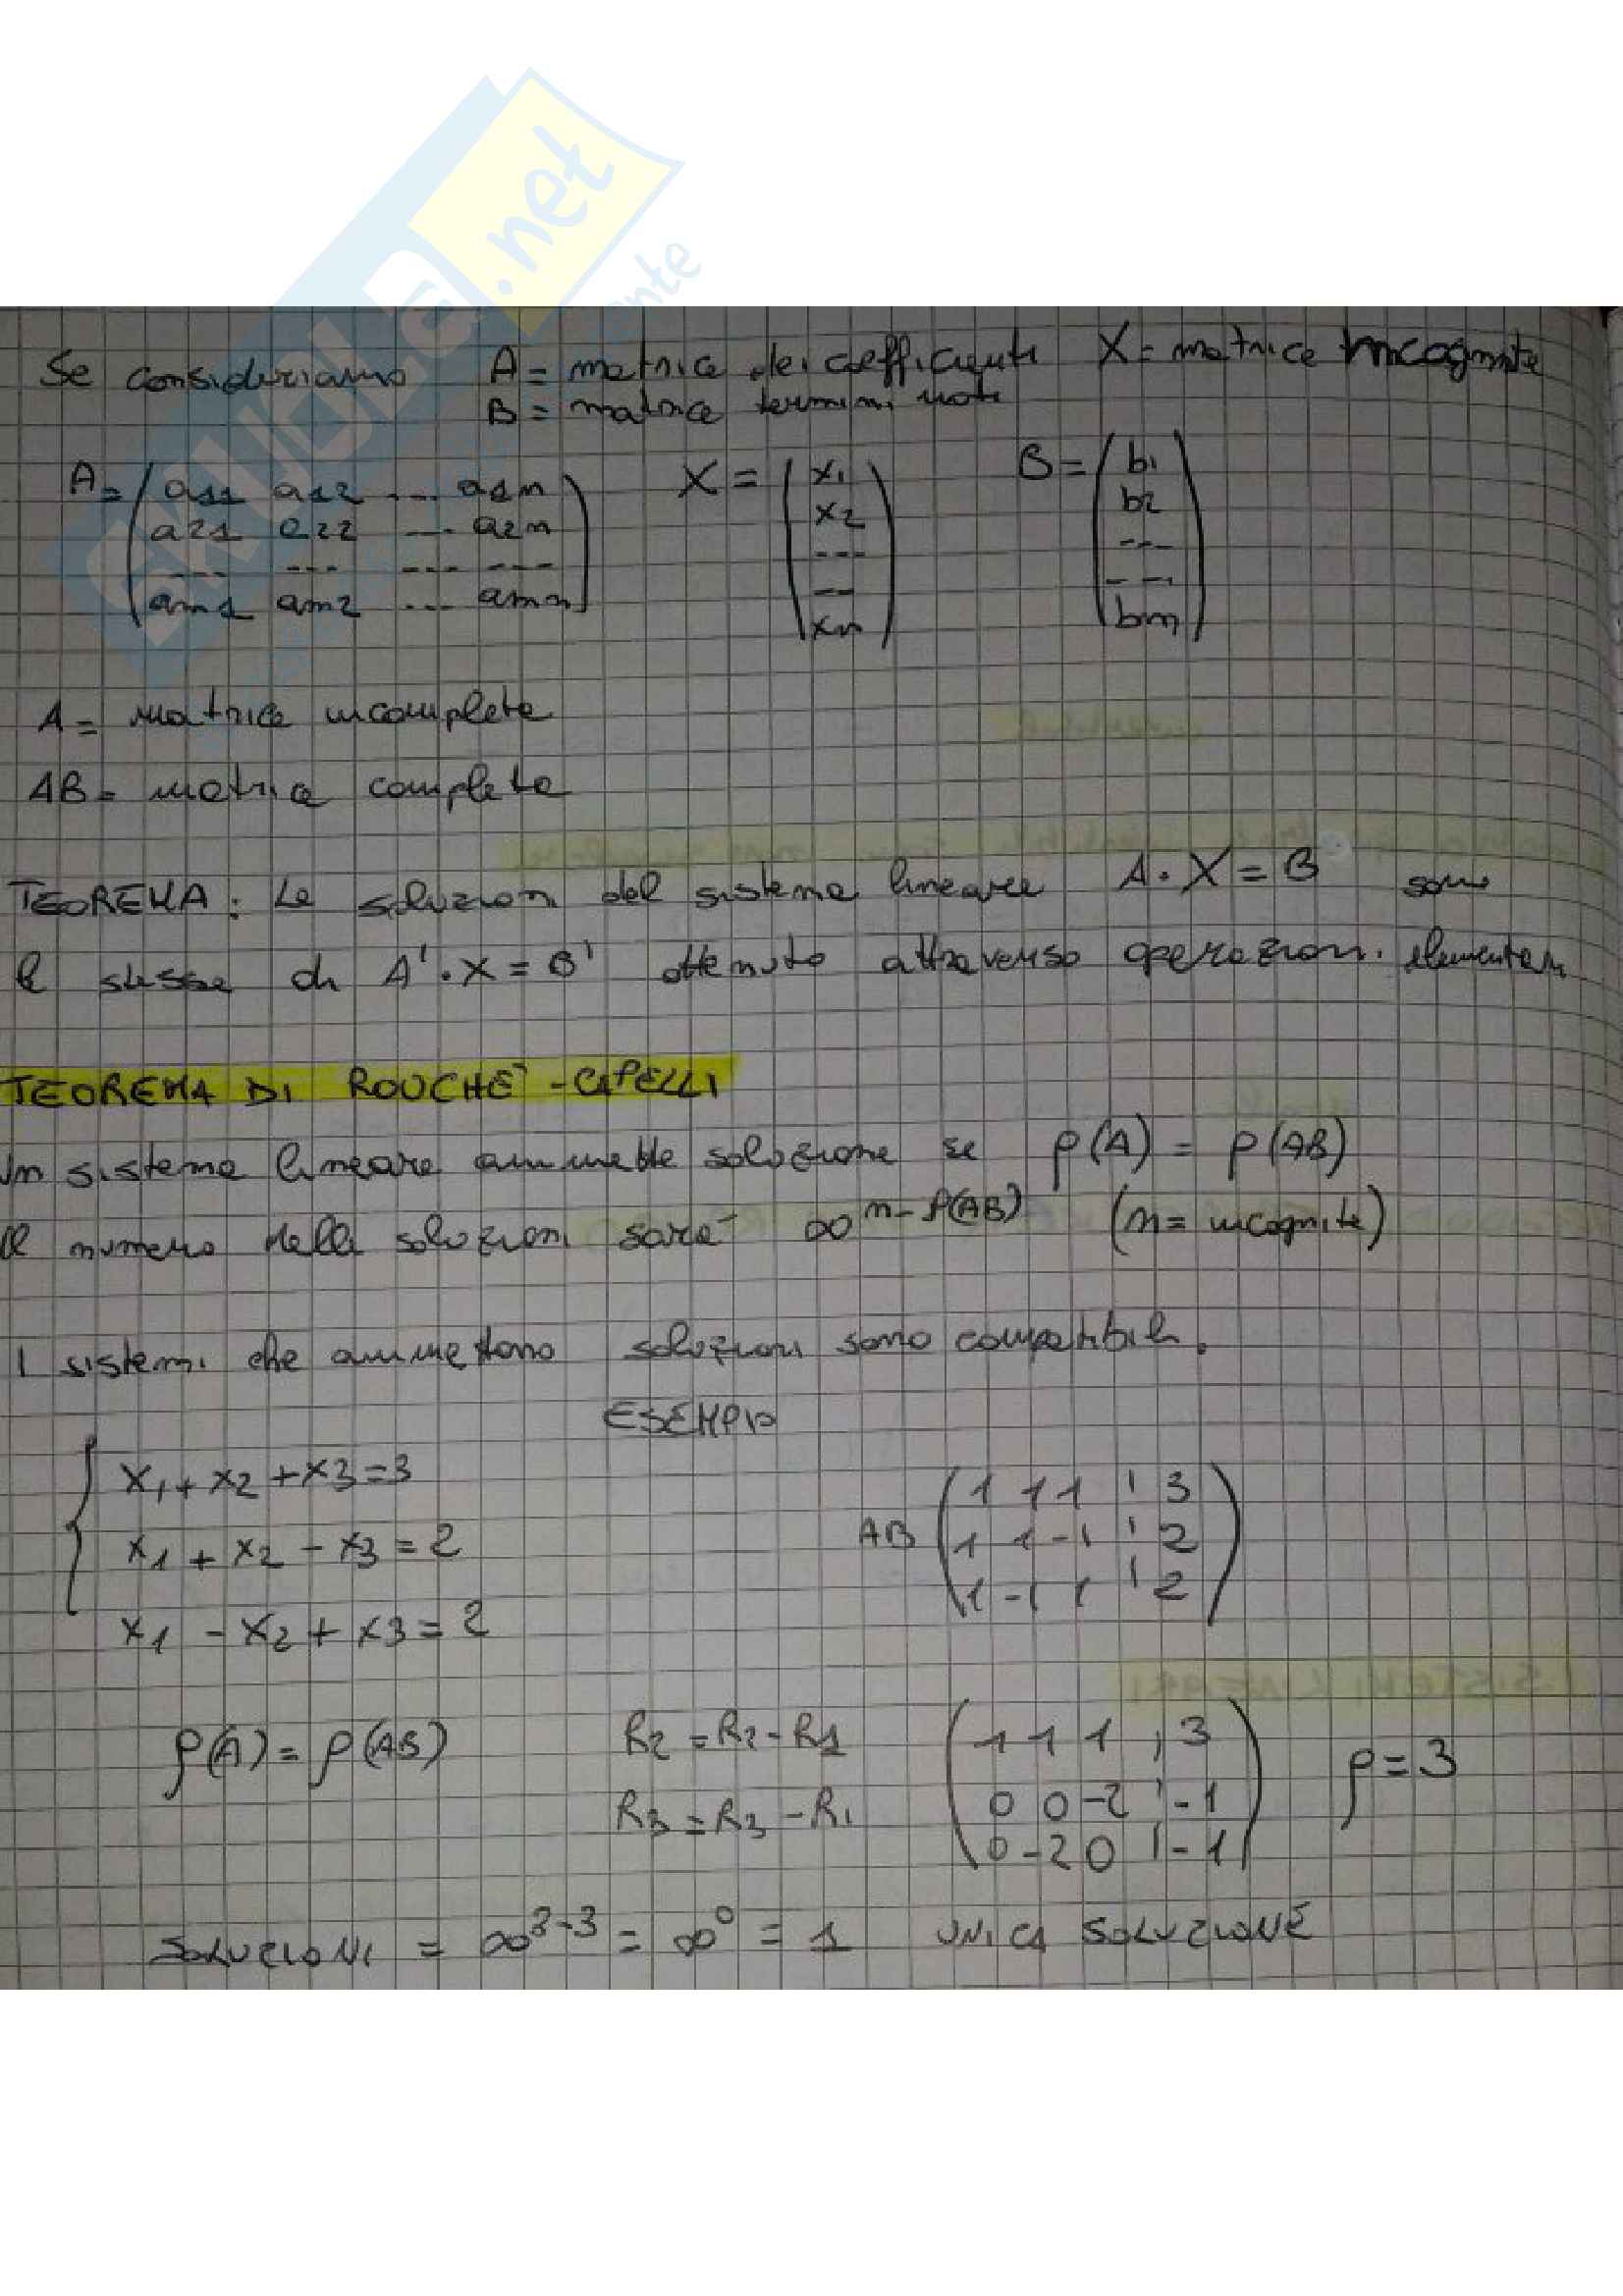 SKUOLA.net
Se consideriamo A = matrice dei coefficienti X = matrice incognite
B = matrice termini noti
A = ( a11 a12 ... a1n ) X = ( x1 ) B = ( b1 )
a21 a22 ... a2n x2 b2
... ... ... ... --- ---
am1 am2 ... amn xn bm
A = matrice incompleta
AB = matrice completa
TEOREMA: Le soluzioni del sistema lineare A · X = B sono
le stesse di A' · X = B' ottenuto attraverso operazioni elementari
TEOREMA DI ROUCHÈ - CAPELLI
Un sistema lineare ammette soluzione se ρ(A) = ρ(AB)
Il numero delle soluzioni sarà ∞^n-ρ(AB) (n = incognite)
I sistemi che ammettono soluzioni sono compatibili.
ESEMPIO
x1 + x2 + x3 = 3
x1 + x2 - x3 = 2
x1 - x2 + x3 = 2
AB ( 1 1 1 | 3 )
1 1 -1 | 2
1 -1 1 | 2
ρ(A) = ρ(AB) R2 = R2 - R1 ( 1 1 1 | 3 ) ρ = 3
R3 = R3 - R1 0 0 -2 | -1
0 -2 0 | -1
SOLUZIONI = ∞^3-3 = ∞^0 = 1 UNICA SOLUZIONE